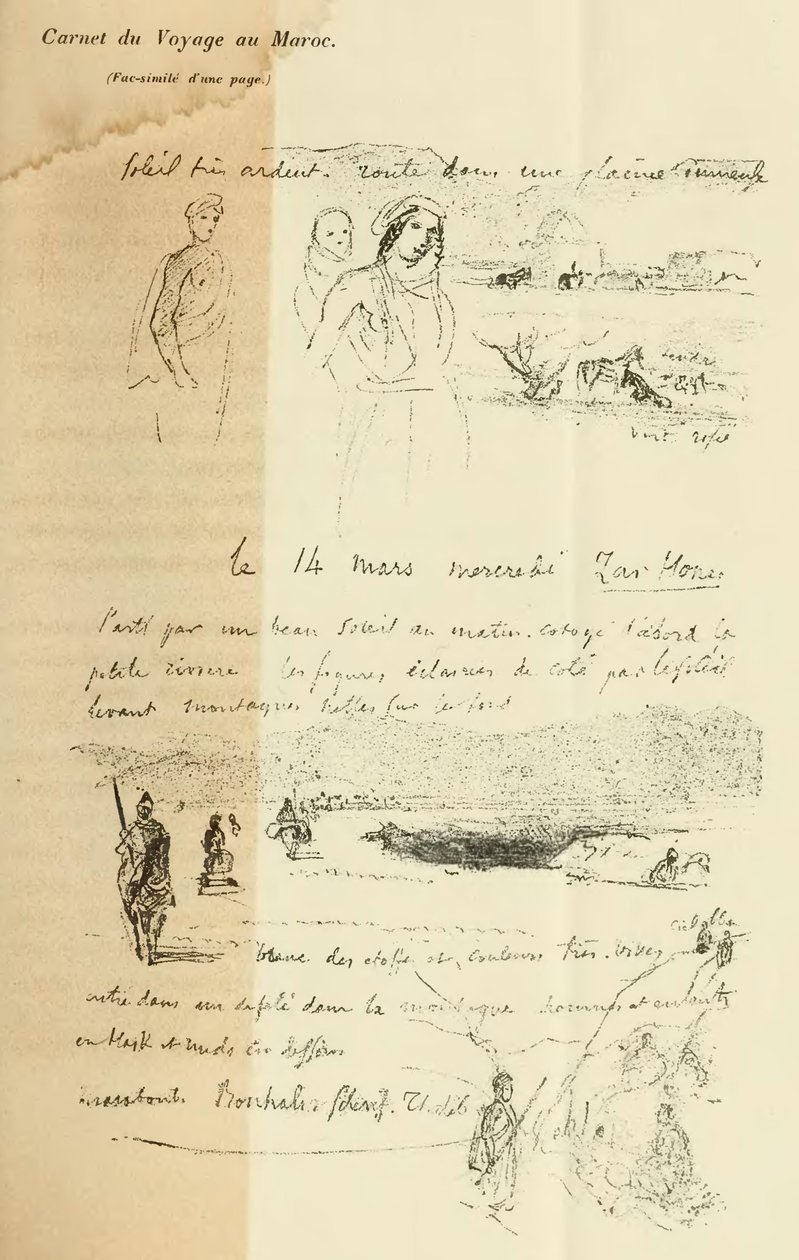 Carnet du Voyage au Maroc.
(Fac-similé d'une page.)
Soleil très ardent. route dans une plaine immense
vert
le 14 mars mercredi Zar Hone.
Parti par un beau soleil au matin. cotoyé d'abord la
petite rivière les figures éclairées de coté par le soleil
levant montagnes nettes sur le fond
blanc des étoffes et couleurs très vives
entré dans un defilé dans la montagne hommes et enfants
en haik et nuds en dessous
marabout.